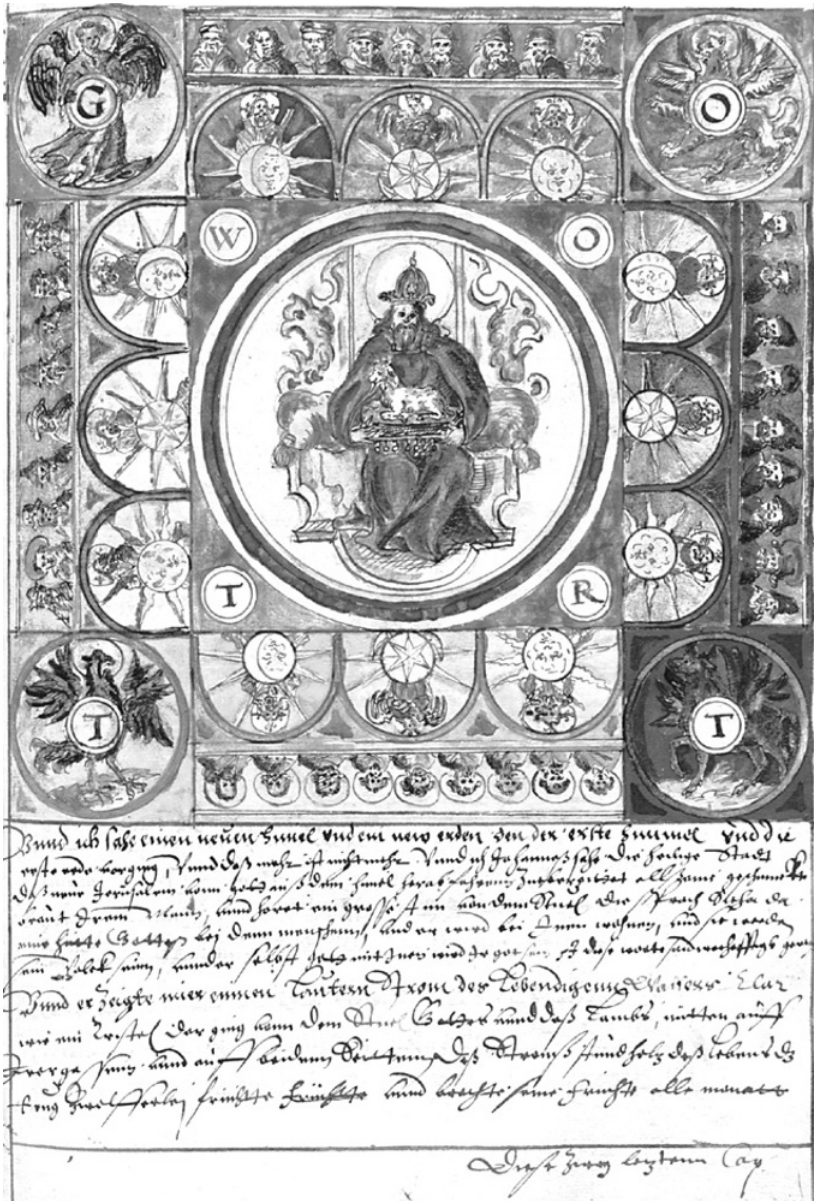 G O
W O
T R
T T
Vnnd ich sahe einen neuen himel vnd ein new erden den der erste himmel vnd die
erste erde verging, Vnnd daß mehr ist nicht mehr. Vnnd ich Johannes sahe die heilige Stadt
daß neüe Jerusalem vonn Gott auß dem himel herab fahrenn Zuebereittet geschmückte
braut Irem Mann, vnnd horet ein grosse stim von dem Stuel die sprach Siehe da
eine hütte Gottes bei denn menschenn, vnd er wird bei Inen wohnen, vnd sie werden
sein Volck seinn, vnnd er selbst Gott mit Inen wird Ir Gott sein diese
Vnnd er Zeigte mier einnen lautern Strom des lebendigenn Wassers klar
wie ein Cristal der ging vonn dem Stuel Gottes vnnd deß Lambs, mitten auff
Irer gassenn vnnd auff beidenn Seittenn deß Stromß stund holz deß lebens dz
trug Zwelfferlei früchtte vnnd brachte seine früchte alle monatt
Diese zwey letztenn Cap